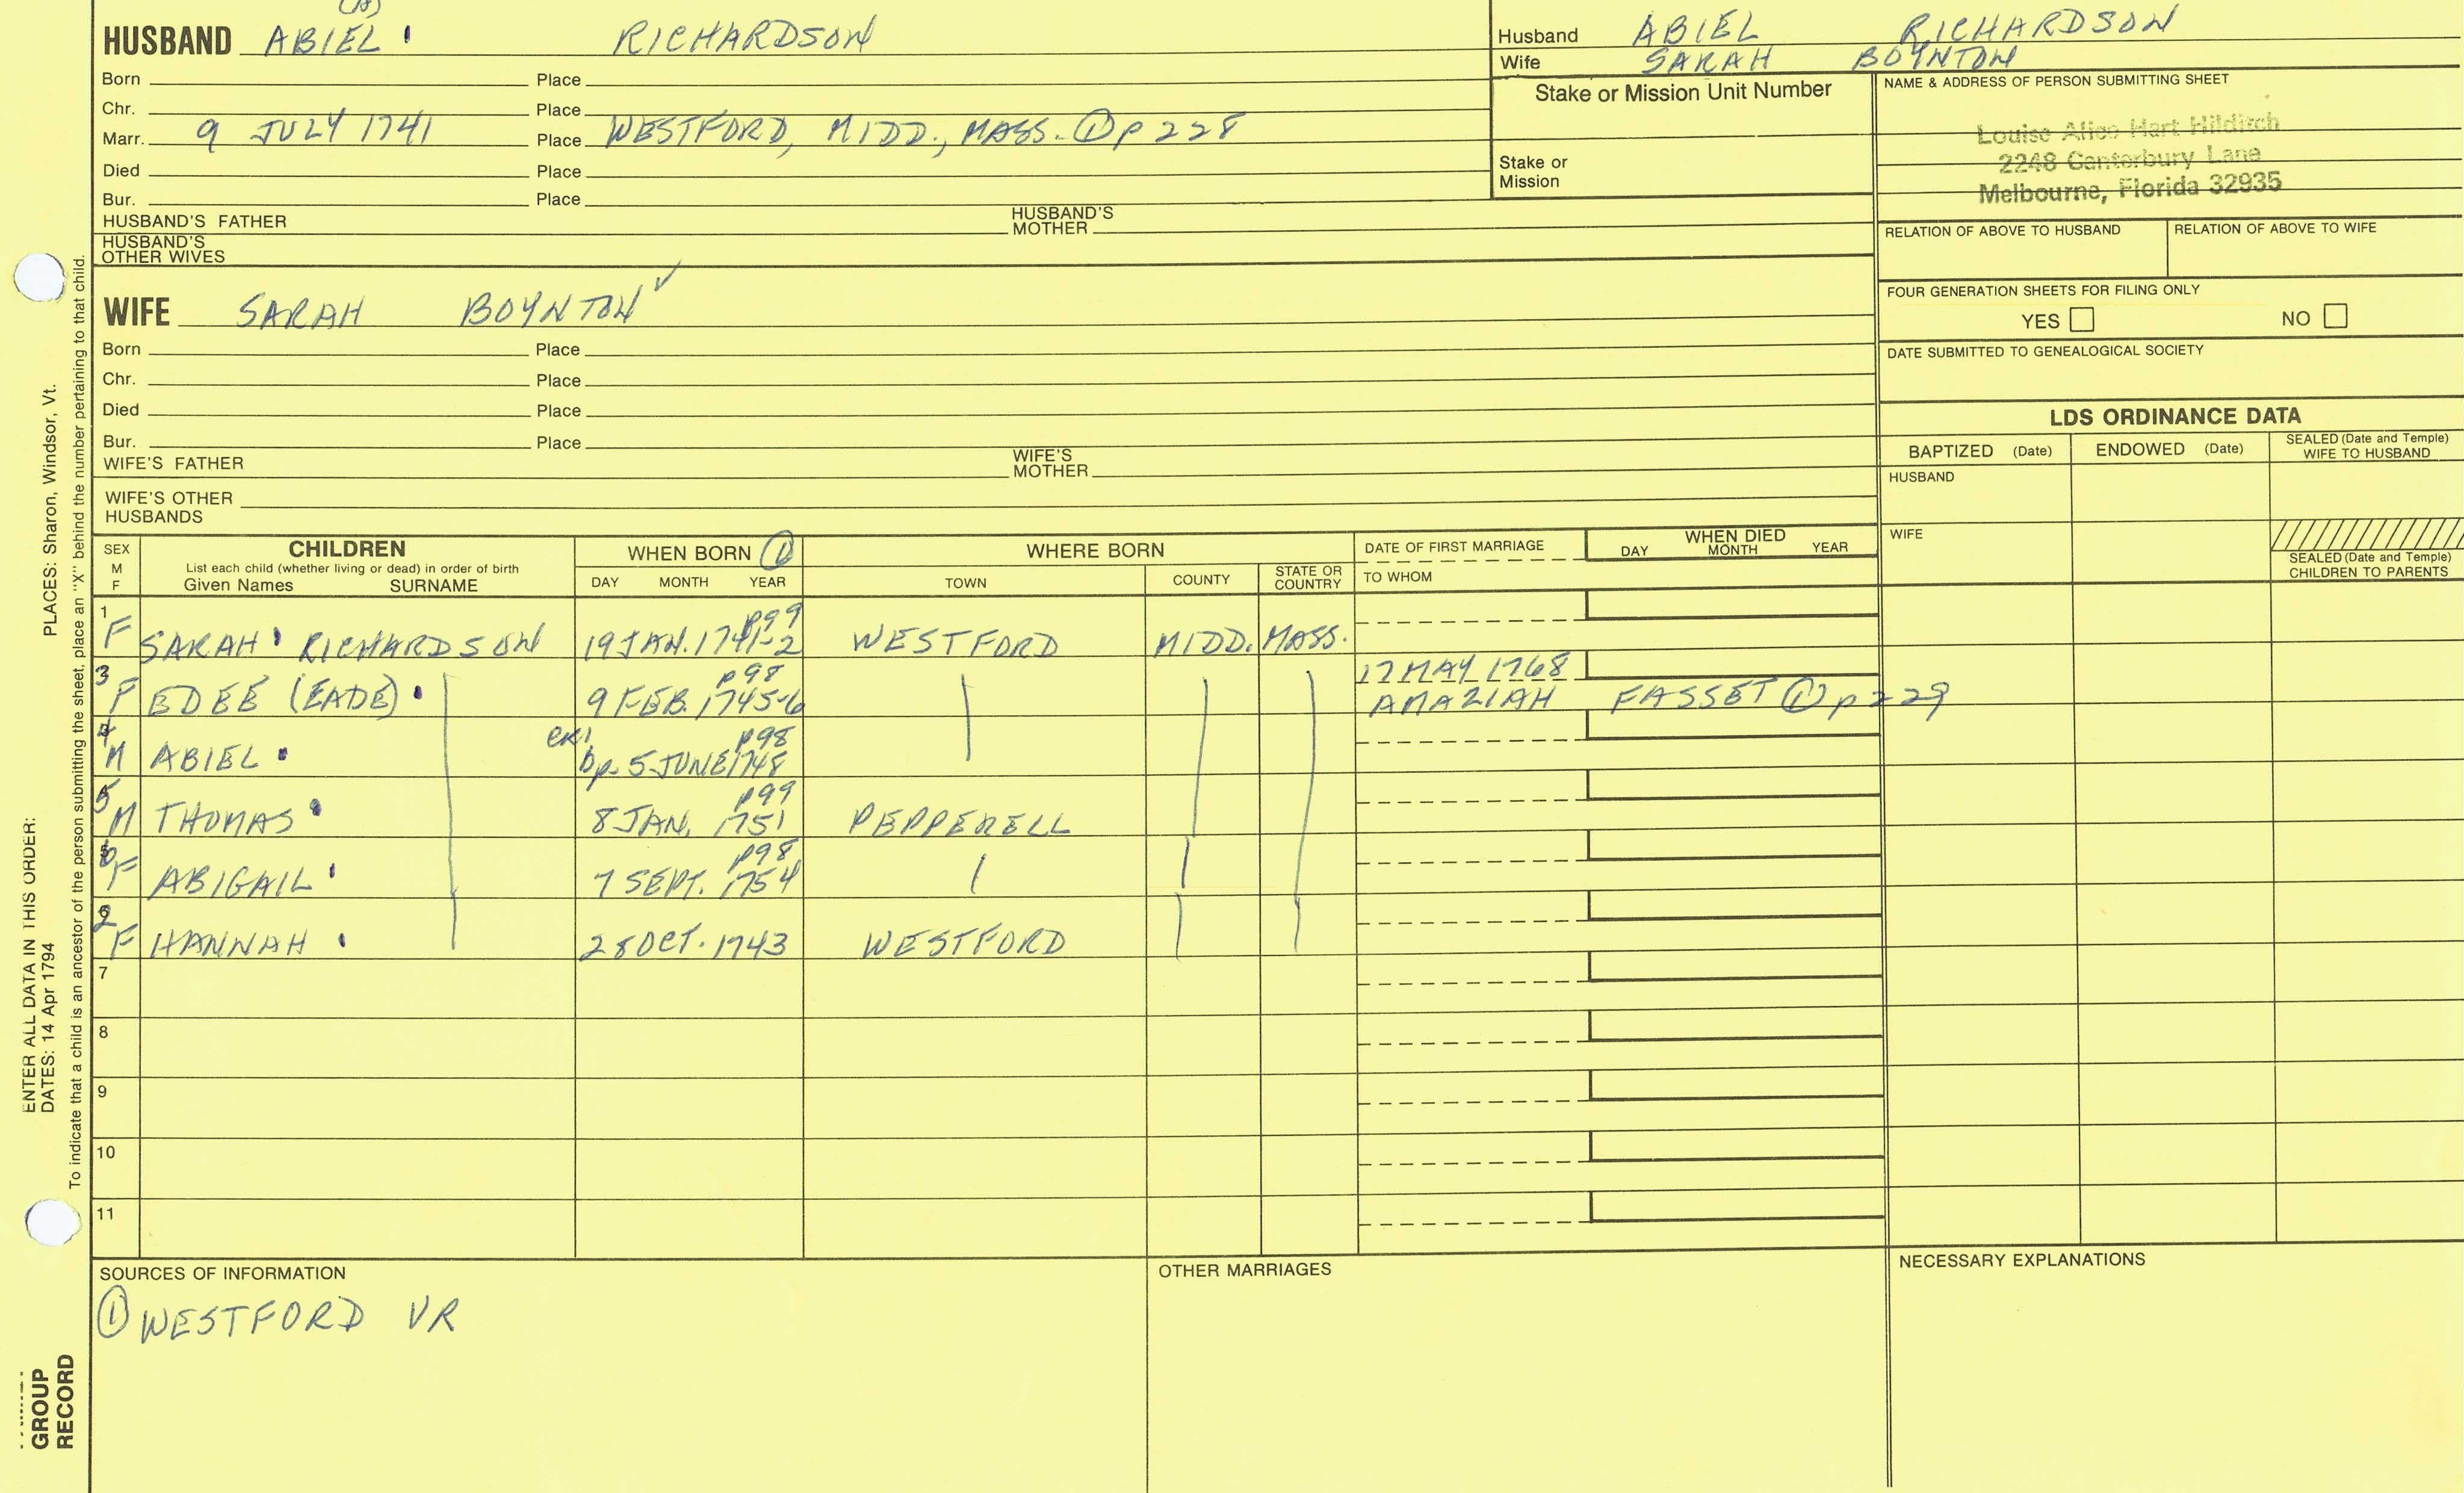 (A)
HUSBAND ABIEL RICHARDSON
Born Place
Chr. Place
Marr. 9 JULY 1741 Place WESTFORD, MIDD., MASS. ① p 228
Died Place
Bur. Place
HUSBAND'S FATHER HUSBAND'S MOTHER
HUSBAND'S OTHER WIVES
Husband ABIEL RICHARDSON
Wife SARAH BOYNTON
Stake or Mission Unit Number
Stake or Mission
NAME & ADDRESS OF PERSON SUBMITTING SHEET
Louise Alice Hart Hilditch
2248 Canterbury Lane
Melbourne, Florida 32935
RELATION OF ABOVE TO HUSBAND RELATION OF ABOVE TO WIFE
FOUR GENERATION SHEETS FOR FILING ONLY
YES NO
DATE SUBMITTED TO GENEALOGICAL SOCIETY
WIFE SARAH BOYNTON ✓
Born Place
Chr. Place
Died Place
Bur. Place
WIFE'S FATHER WIFE'S MOTHER
WIFE'S OTHER HUSBANDS
LDS ORDINANCE DATA
BAPTIZED (Date) ENDOWED (Date) SEALED (Date and Temple) WIFE TO HUSBAND
HUSBAND
WIFE
SEALED (Date and Temple) CHILDREN TO PARENTS
SEX M F
CHILDREN
List each child (whether living or dead) in order of birth
Given Names SURNAME
WHEN BORN ①
DAY MONTH YEAR
WHERE BORN
TOWN COUNTY STATE OR COUNTRY
DATE OF FIRST MARRIAGE
TO WHOM
WHEN DIED
DAY MONTH YEAR
p99
1 F SARAH RICHARDSON 19 JAN. 1741-2 WESTFORD MIDD. MASS.
p98 17 MAY 1768
3 F EDEE (EADE) 9 FEB. 1745-6 AMAZIAH FASSET ① p 229
CR1 p98
4 M ABIEL bp. 5 JUNE 1748
p99
5 M THOMAS 8 JAN. 1751 PEPPERELL
p98
6 F ABIGAIL 7 SEPT. 1754
2 F HANNAH 28 OCT. 1743 WESTFORD
7
8
9
10
11
SOURCES OF INFORMATION
① WESTFORD VR
OTHER MARRIAGES
NECESSARY EXPLANATIONS
ENTER ALL DATA IN THIS ORDER:
DATES: 14 Apr 1794 PLACES: Sharon, Windsor, Vt.
To indicate that a child is an ancestor of the person submitting the sheet, place an "X" behind the number pertaining to that child.
GROUP
RECORD